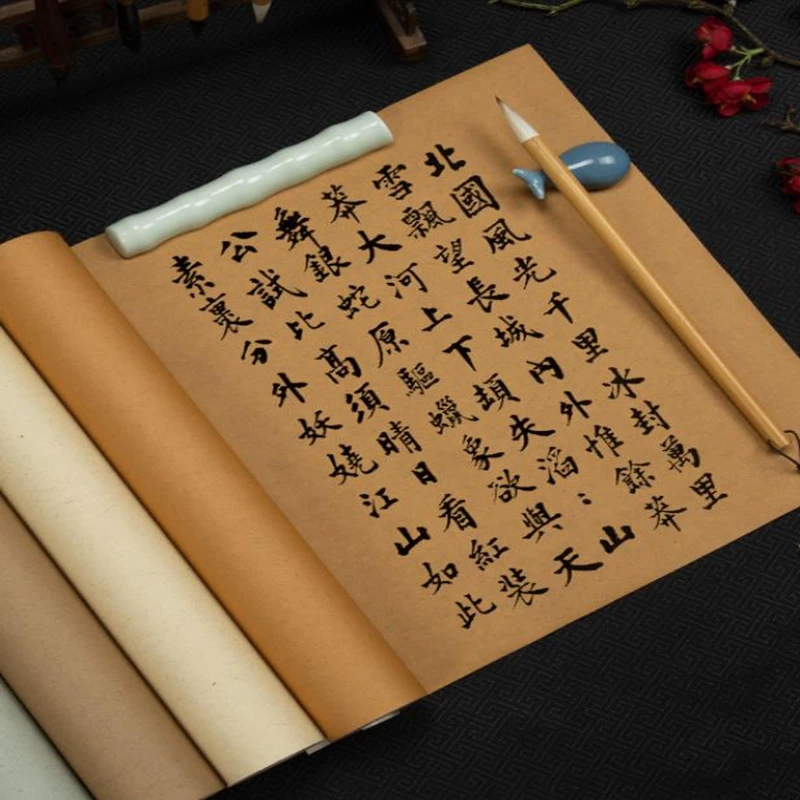 北國風光千里冰封萬里
雪飄望長城內外惟餘莽
莽大河上下頓失滔：山
舞銀蛇原驅蠟象欲與天
公試比高須晴日看紅裝
素裹分外妖嬈江山如此